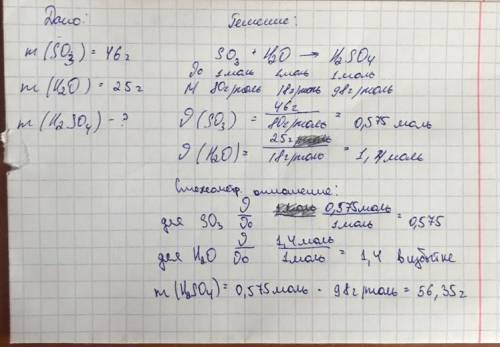 Дано: Решение:
m(SO₃) = 46г SO₃ + H₂O → H₂SO₄
ϑо 1моль 1моль 1моль
m(H₂O) = 25г M 80г/моль 18г/моль 98г/моль
m(H₂SO₄) - ? ϑ(SO₃) = 46г / 80г/моль = 0,575 моль
ϑ(H₂O) = 25г / 18г/моль = 1,4моль
Стехиометр. отношение:
для SO₃ ϑ/ϑо 0,575моль / 1моль = 0,575
для H₂O ϑ/ϑо 1,4моль / 1моль = 1,4 в избытке
m(H₂SO₄) = 0,575моль · 98г/моль = 56,35г